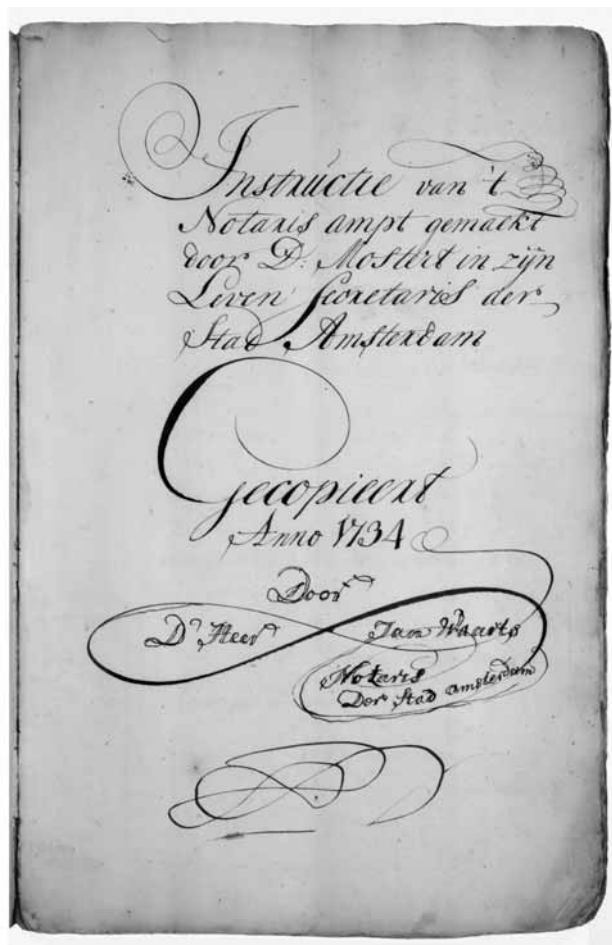 Instructie van 't
Notaris ampt gemaekt
door D: Mostert in zijn
Leven Secretaris der
Stad Amsterdam
Gecopieert
Anno 1734
Door
D'Heer Jan Waarts
Notaris
Der Stad Amsterdam